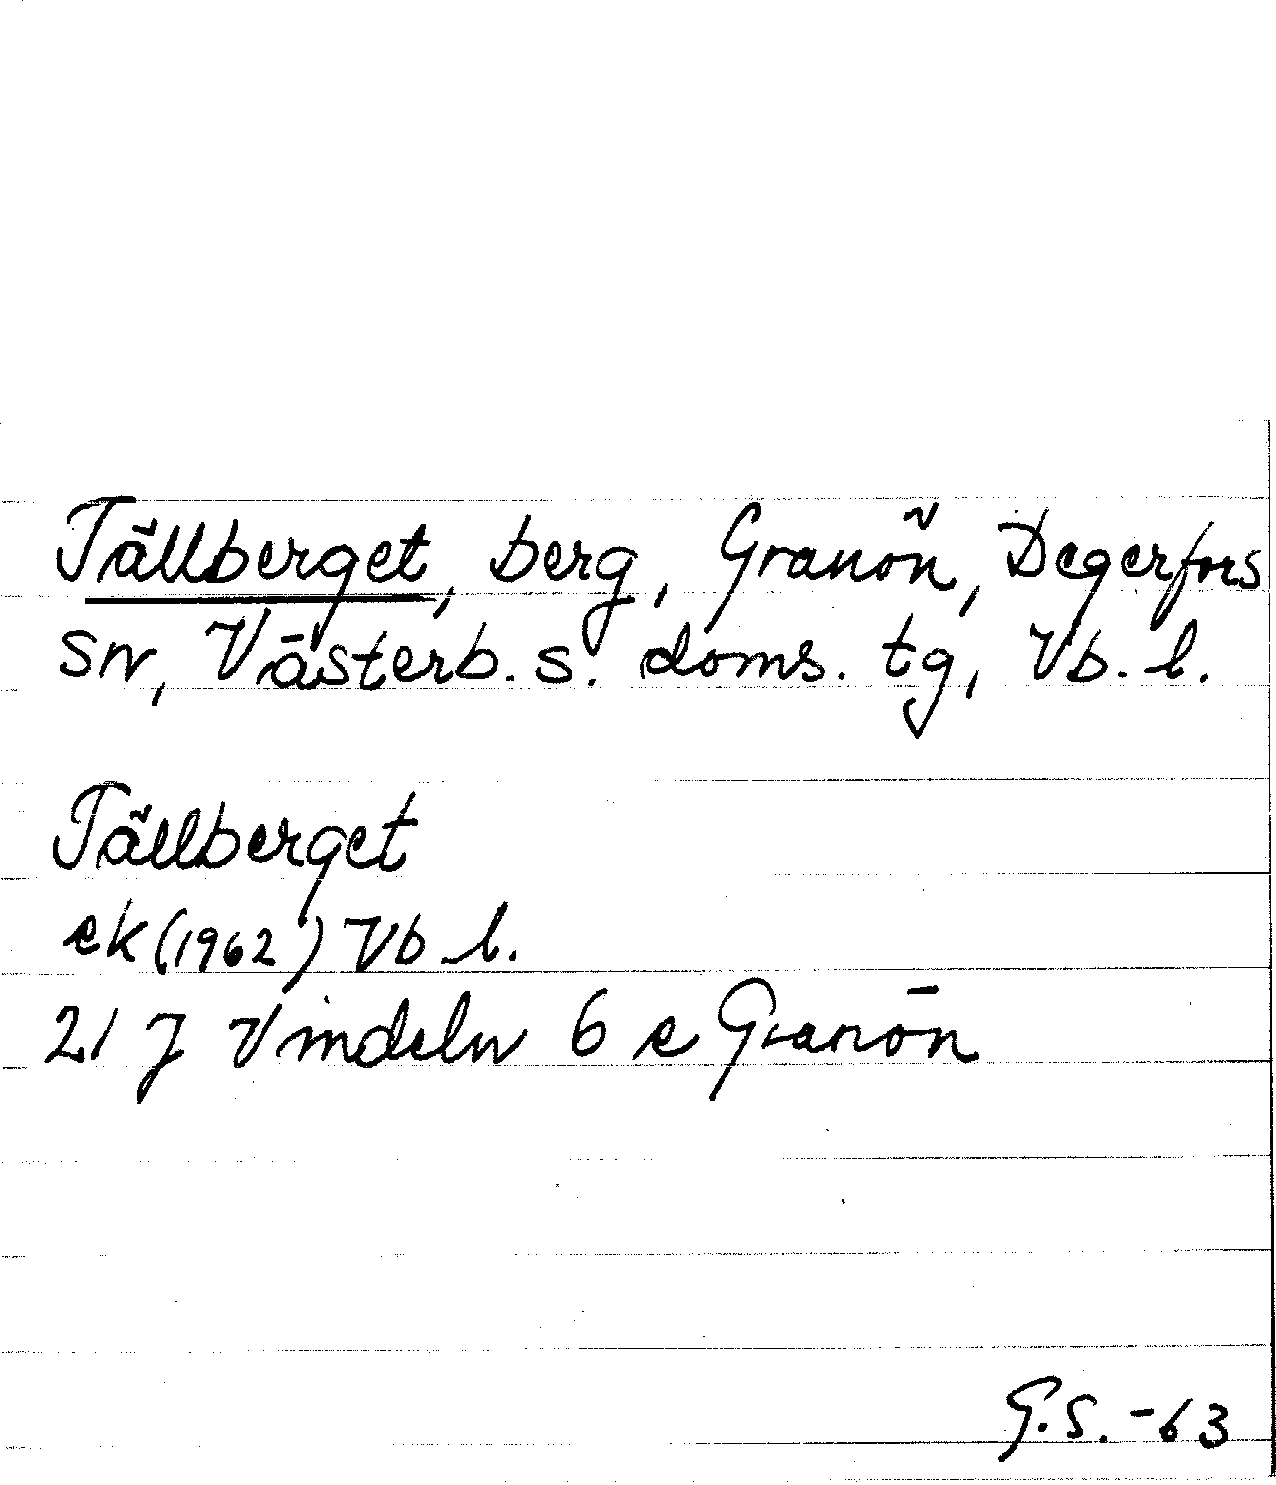 Tällberget, berg, Granön, Degerfors
sn, Västerb. s. doms. tg, Vb. l.
Tällberget
ek (1962) Vb l.
21 J Vindeln 6 e Granön
G.S. -63